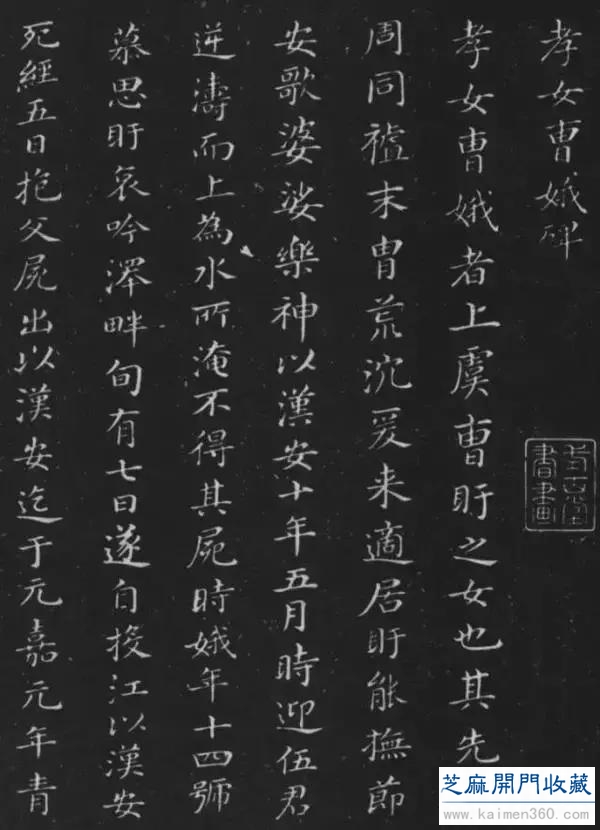 孝女曹娥碑
孝女曹娥者上虞曹盱之女也其先
周同禠末胄荒沈爰来適居盱能撫節
安歌婆娑樂神以漢安十年五月時迎伍君
逆濤而上為水所淹不得其屍時娥年十四號
慕思盱哀吟澤畔旬有七日遂自投江以漢安
死經五日抱父屍出以漢安迄于元嘉元年青
書畫
芝麻開門收藏
www.kaimen360.com